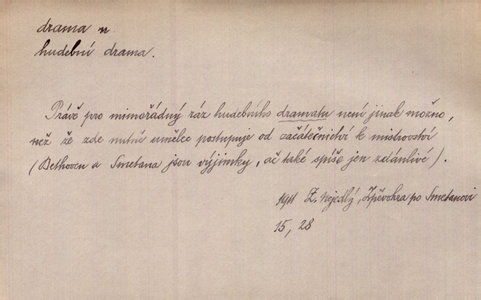 drama n
hudební drama.
Právě pro mimořádný ráz hudebního dramatu není jinak možno,
než že zde nutně umělec postupuje od začátečnictví k mistrovství
(Bethoven a Smetana jsou výjimky, ač také spíše jen zdánlivé).
1911 Z. Nejedlý, Zpěvohra po Smetanovi
15, 28